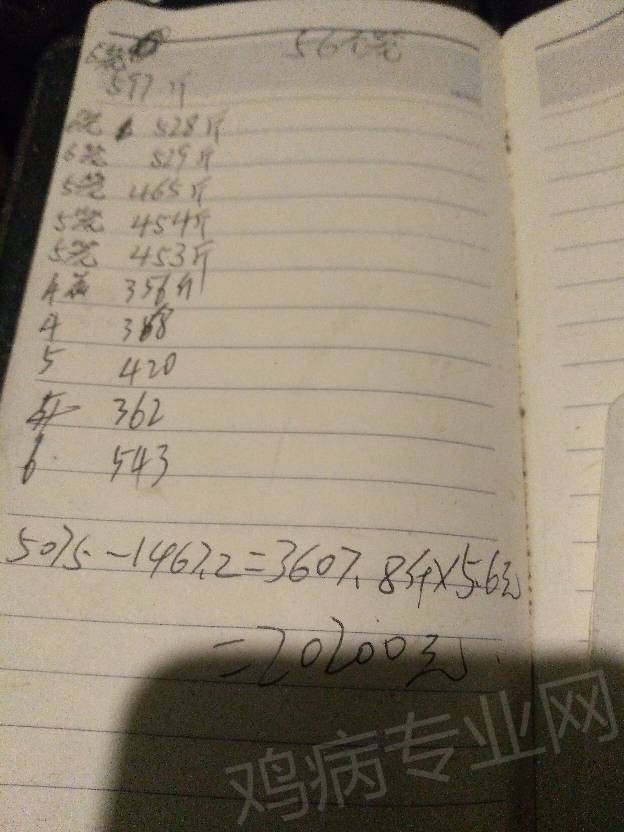 56个笼
6笼
597斤
6笼 528斤
6笼 529斤
5笼 465斤
5笼 454斤
5笼 453斤
4笼 356斤
4 368
5 420
4 362
6 543
5075-1467.2=3607.8斤×5.6元
=20200元
鸡病专业网